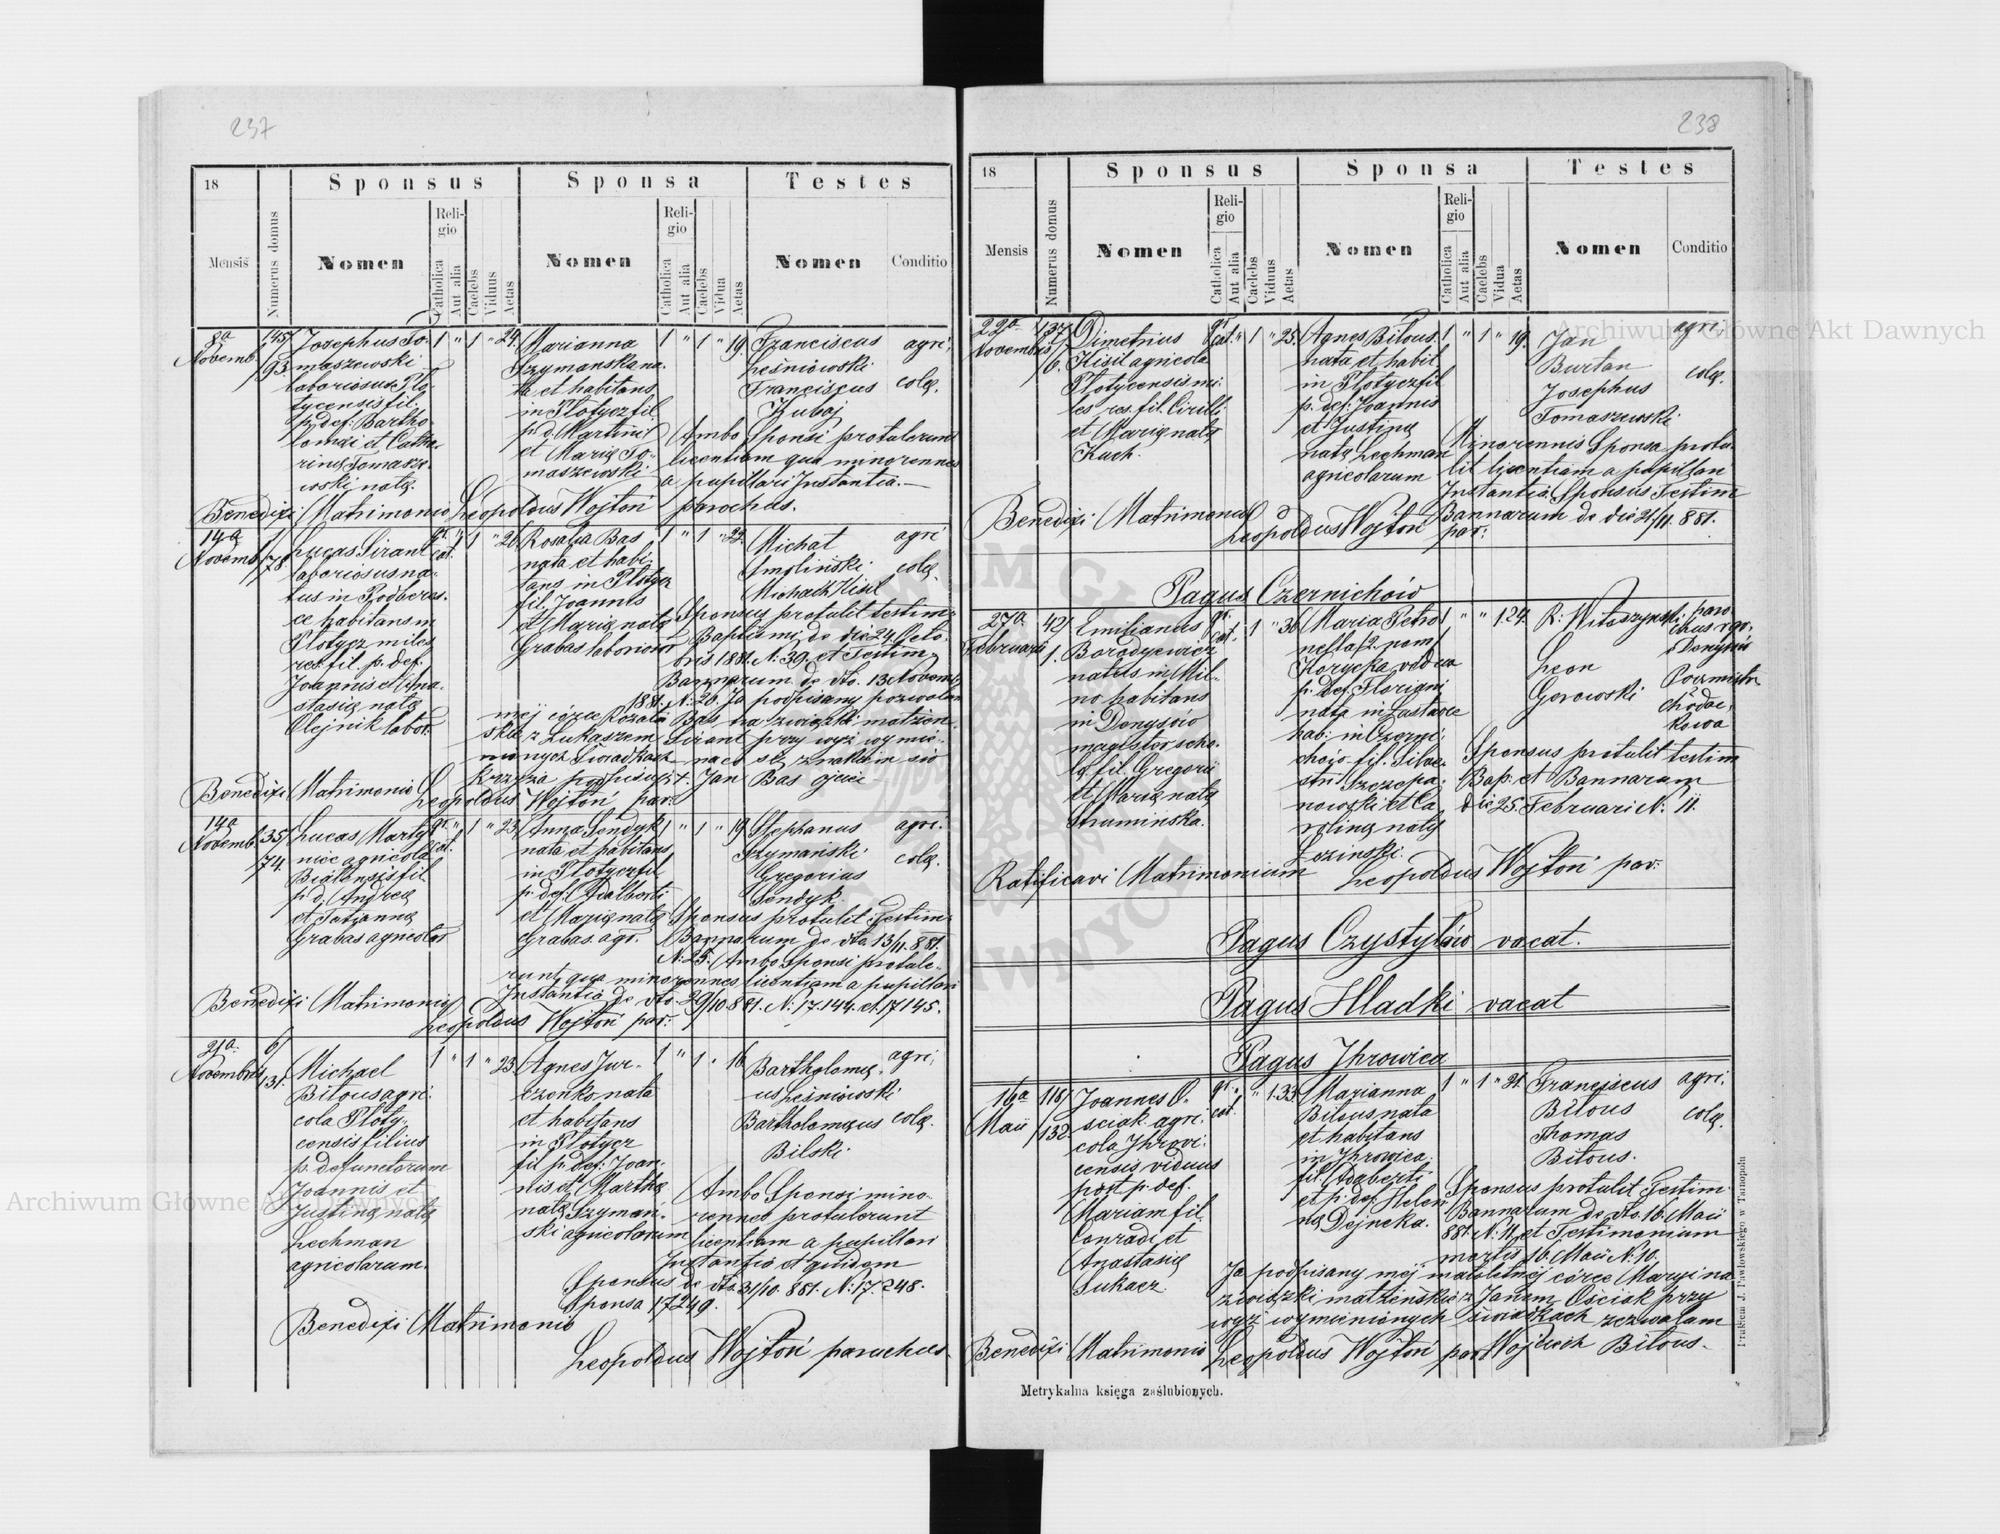 237
18
Sponsus
Sponsa
Testes
Mensis
Numerus domus
Nomen
Religio
Catholica
Aut alia
Caelebs
Viduus
Aetas
Nomen
Religio
Catholica
Aut alia
Caelebs
Vidua
Aetas
Nomen
Conditio
8a
Novemb.
145/
93
Josephus To-
maszewski
laboriosus Pło-
tycensis fil.
p. def. Bartho-
lomaei et Catha-
rinę Tomasze-
wski natę.
1 " 1 " 24.
Marianna
Szymanska na-
ta et habitans
in Płotycz fil
p. d. Martini
et Marię To-
maszewski
1 " 1 " 19.
Franciscus
Leśniowski
Franciscus
Kubaj
agri,
colę.
Ambo Sponsi protulerunt
licentiam qua minorennes
a pupillari Instantia.—
Benedixi Matrimonio Leopoldus Wojtoń parochus.
14a
Novemb.
/78.
Lucas Sirant
laboriosus na-
tus in Podberez-
ce habitans in
Płotycz miles
res. fil. p. def.
Joannis et Ana-
stasię natę
Olejnik labor.
gr. cat. " 1 " 26.
Rosalia Bas
nata et habi-
tans in Płotycz
fil. Joannis
et Marię natę
Grabas laborios.
1 " 1 " 22.
Michał
Smoliński
Michael Kisil
agri
colę.
Sponsus protulit testim.
Baptismi de die 24 Octo-
bris 1881. N. 39. et Testim.
Bannarum de dto. 13 Novemb.
1881. N. 20. Ja podpisany pozwalam
mej córce Rozalii Bas na związki małżeń-
skie z Łukaszem Sirant przy wyż wymie-
nionych Świadkach na co się znakiem śię
Krzyża podpisuję †. Jan Bas ojciec
Benedixi Matrimonio Leopoldus Wojtoń par.
14a
Novemb.
35/
74.
Lucas Marty-
niec agricola
Bialensis fil
p. d. Andreę
et Tatjannę
Grabas agricolar.
gr. cat. " 1 " 23.
Anna Sendyk
nata et habitans
in Płotycz fil
p. def. Adalberti
et Marię natę
Grabas agr.
1 " 1 " 19
Stephanus
Szymański
Gregorius
Sendyk.
agri.
colę.
Sponsus protulit Testim.
Bannarum de dto 13/11. 881.
N. 25. Ambo Sponsi protule-
runt qua minorennes licentiam a pupillari
Instantia de dto. 29/10. 881. N. 17.144. et 17145.
Benedixi Matrimonio
Leopoldus Wojtoń par.
21a
Novembris
6/
131.
Michael
Biłous agri-
cola Płoty-
censis filius
p. defunctorum
Joannis et
Justinę natę
Lechman
agricolarum.
1 " 1 " 23.
Agnes Jur-
czenko nata
et habitans
in Płotycz
fil p. def. Joan-
nis et Marthę
natę Szyman-
ski agricolarum
1 " 1 " 18
Bartholomę-
us Leśniowski
Bartholomęus
Bilski.
agri,
colę.
Ambo Sponsi mino-
rennes protulerunt
licentiam a pupillari
Instantia et quidem
Sponsus de dto. 31/10. 881. N. 17.248.
Sponsa 17249.
Benedixi Matrimonio
Leopoldus Wojtoń parochus.
238
18
Sponsus
Sponsa
Testes
Mensis
Numerus domus
Nomen
Religio
Catholica
Aut alia
Caelebs
Viduus
Aetas
Nomen
Religio
Catholica
Aut alia
Caelebs
Vidua
Aetas
Nomen
Conditio
22a
Novembris
137/
6.
Dimetrius
Kisil agricola
Płotycensis mi-
les res. fil. Cirilli
et Marię natę
Kuch.
gr. cat. " 1 " 25.
Agnes Biłous
nata et habit.
in Płotycz fil
p. def. Joannis
et Justinę
natę Lechman
agricolarum
1 " 1 " 19.
Jan
Burtan
Josephus
Tomaszewski
agri,
colę.
Minorennis Sponsa protu-
lit licentiam a pupillari
Instantia Sponsus Testim.
Bannarum de die 21/11. 881.
Benedixi Matrimonio Leopoldus Wojtoń par:
Pagus Czernichów
27a
Februarii
42/
1.
Emilianus
Borodyewicz
natus in Mil-
no habitans
in Denysów
magister scho-
lę fil. Gregorii
et Marię natę
Struminska.
gr. cat. " 1 " 36
Maria Petro-
nella 2. nom.
Korycka vidua
p. def. Floriani
nata in Zastawie
hab. in Czerni-
chów fil. Silve-
stri Szczepa-
nowski et Ca-
rolinę natę
Łozinski.
1 " " 1. 24.
R. Witoszynski
Leon
Gorowski
paro-
chus r. gr.
Denysów
Poczmistr.
chodac-
kowa
Sponsus protulit testim
Bap. et Bannarum
die 25. Februari N. 11.
Ratificavi Matrimonium Leopoldus Wojtoń par:
Pagus Czystyłów vacat.
Pagus Hladki vacat
Pagus Ihrowica
16a
Maii
118/
132.
Joannes O-
sciak agri-
cola Ihrovi-
censis viduus
post p. def.
Mariam fil.
Conradi et
Anastasię
Sukacz
gr. cat. " " 1. 33
Marianna
Biłous nata
et habitans
in Ihrowica
fil. Adalberti
et p. def. Hele-
nę Dejneka.
1 " 1 " 21.
Franciscus
Biłous
Thomas
Biłous.
agri,
colę.
Sponsus protulit Testim.
Bannarum de dto. 16. Maii
881. N. 11. et Testimonium
mortis 16. Maii N. 10.
Ja podpisany mej małoletnej córce Maryi na
związki małżeńskie z Janem Ościak przy
wyż wymienionych świadkach zezwalam
Wojciech Biłous.
Benedixi Matrimonio Leopoldus Wojtoń par.
Metrykalna księga zaślubionych.
Drukiem J. Pawłowskiego w Tarnopolu
Archiwum Główne Akt Dawnych
Archiwum Główne Akt Dawnych